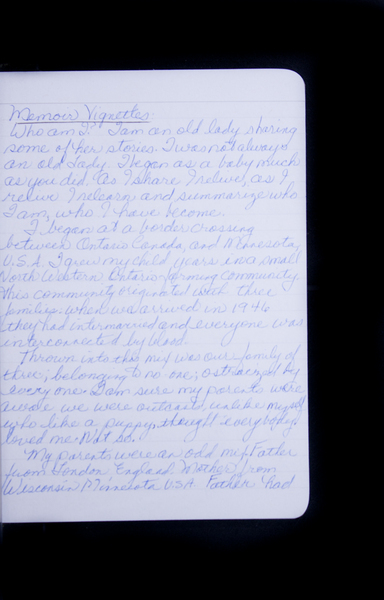 Memoir Vignettes
Who am I? I am an old lady sharing
some of her stories. I was not always
an old lady. I began as a baby much
as you did. As I share I relive, as I
relive I relearn and summarize who
I am, who I have become.
I began at a border crossing
between Ontario Canada, and Minnesota,
U.S.A. I grew my child years in a small
North Western Ontario farming community
this community originated with three
families. When we arrived in 1946
they had intermarried and everyone was
interconnected by blood.
Thrown into this mix was our family of
three; belonging to no one; ostracized by
everyone. I am sure my parents were
aware we were outcasts, unlike myself
who like a puppy thought everybody
loved me. Not so.
My parents were an odd mix Father
from London England Mother from
Wisconsin Minnesota U.S.A. Father had